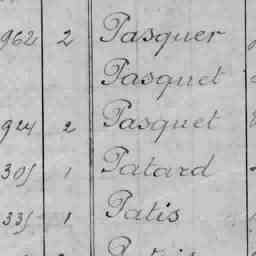 962 2 Pasquer
Pasquet
924 2 Pasquet
305 1 Patard
335 1 Patis